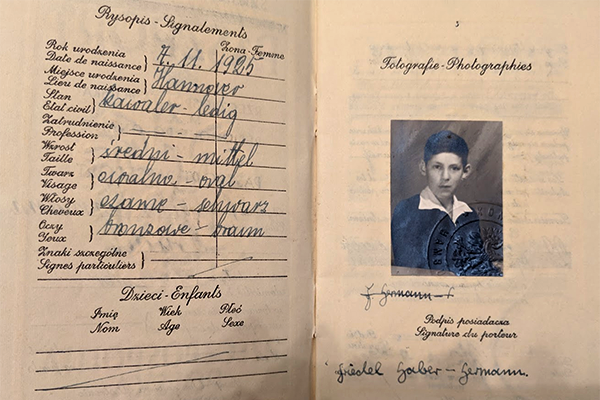 Rysopis - Signalements
Żona - Femme
Rok urodzenia
Date de naissance } 7. 11. 1925
Miejsce urodzenia
Lieu de naissance } Hannover
Stan
Etat civil } kawaler - ledig
Zatrudnienie
Profession }
Wzrost
Taille } średni - mittel
Twarz
Visage } owalna - oval
Włosy
Cheveux } czarne - schwarz
Oczy
Yeux } bronzowe - braun
Znaki szczególne
Signes particuliers }
Dzieci - Enfants
Imię Wiek Płeć
Nom Age Sexe
5
Fotografie - Photographies
Hermann
Podpis posiadacza
Signature du porteur
Friedel Haber - Hermann.